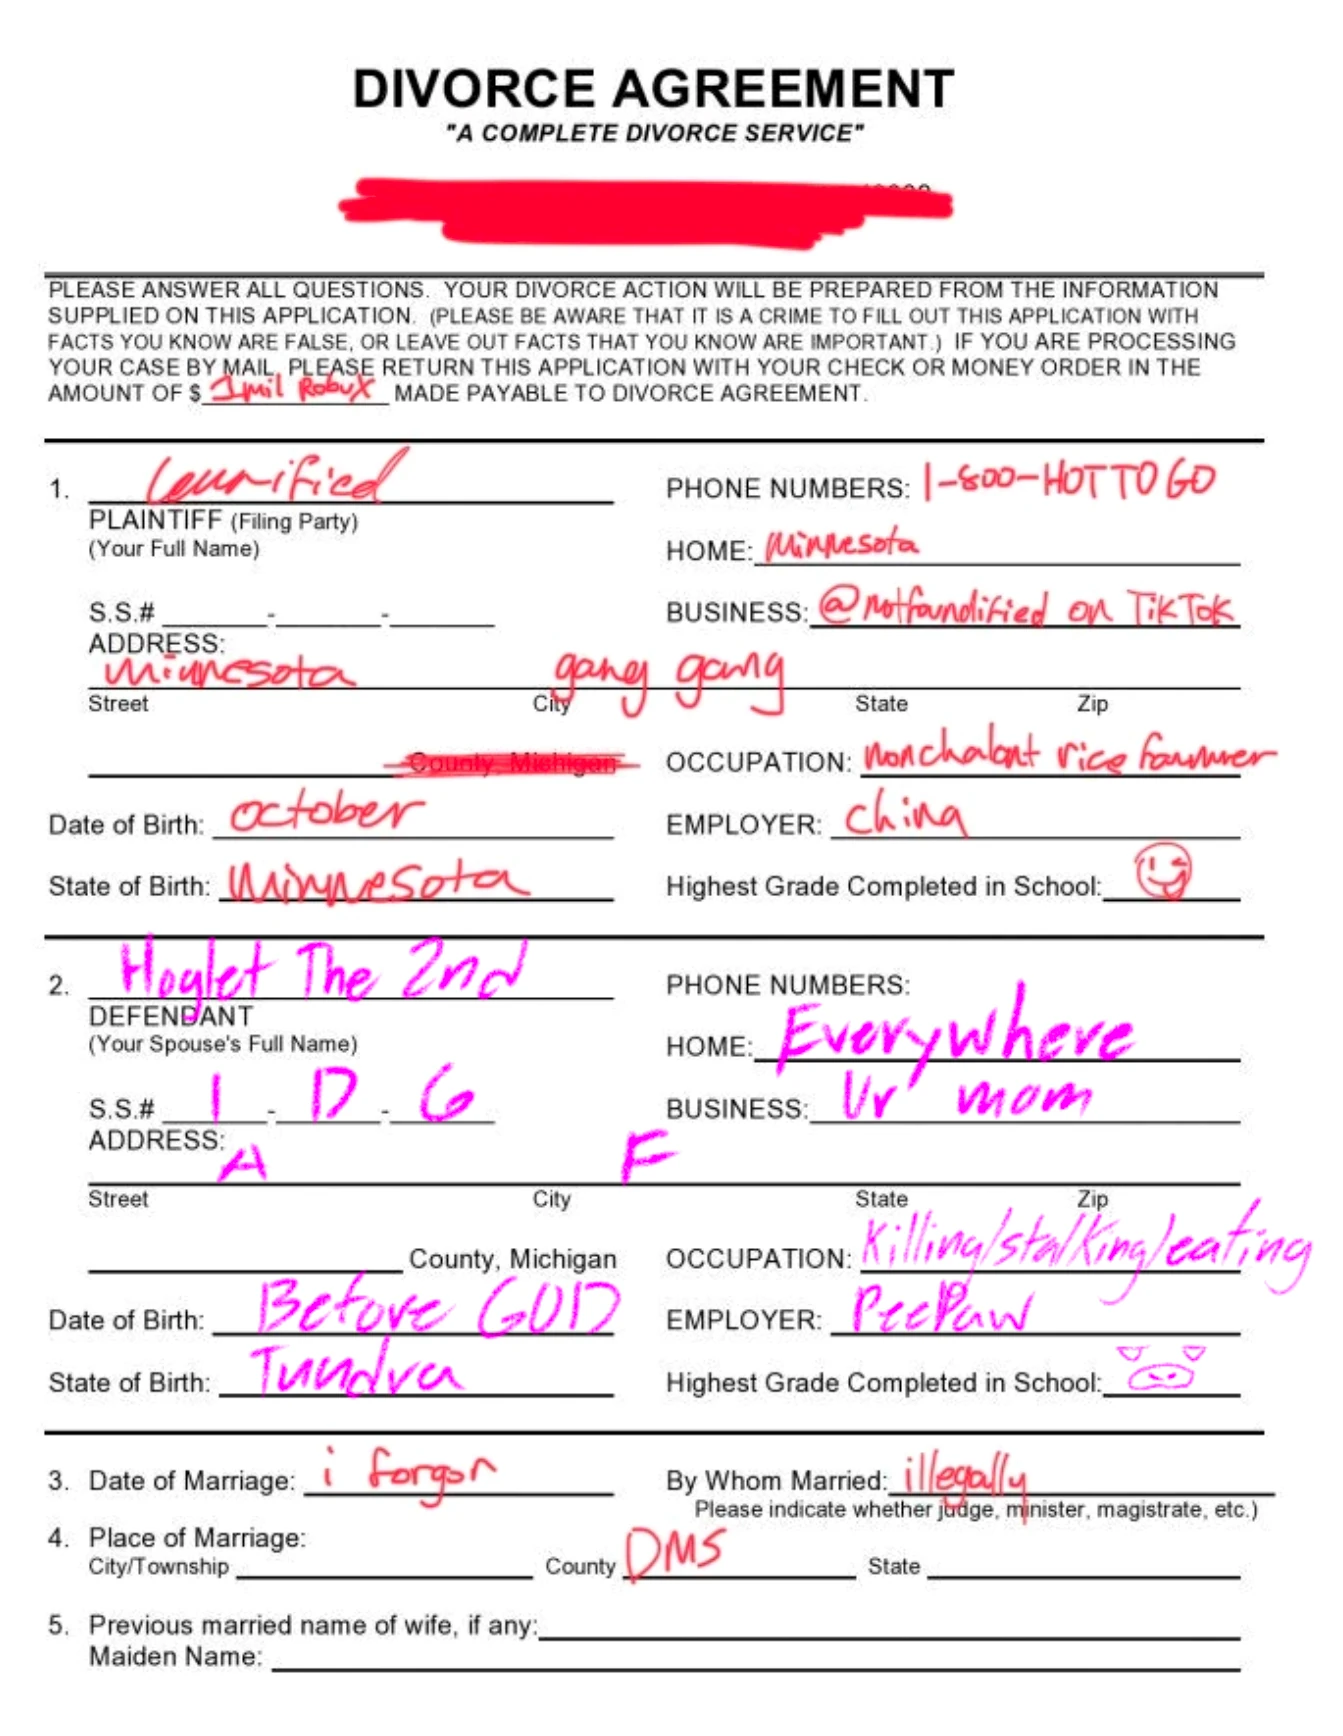 DIVORCE AGREEMENT
"A COMPLETE DIVORCE SERVICE"
PLEASE ANSWER ALL QUESTIONS. YOUR DIVORCE ACTION WILL BE PREPARED FROM THE INFORMATION
SUPPLIED ON THIS APPLICATION. (PLEASE BE AWARE THAT IT IS A CRIME TO FILL OUT THIS APPLICATION WITH
FACTS YOU KNOW ARE FALSE, OR LEAVE OUT FACTS THAT YOU KNOW ARE IMPORTANT.) IF YOU ARE PROCESSING
YOUR CASE BY MAIL, PLEASE RETURN THIS APPLICATION WITH YOUR CHECK OR MONEY ORDER IN THE
AMOUNT OF $ 1mil Robux MADE PAYABLE TO DIVORCE AGREEMENT.
1. PHONE NUMBERS: 1-800-HOTTOGO
PLAINTIFF (Filing Party)
(Your Full Name)
HOME: Minnesota
S.S.# - -
BUSINESS: @notfoundified on TikTok
ADDRESS:
Minnesota gang gang
Street City State Zip
County, Michigan OCCUPATION: nonchalant rice farmer
Date of Birth: october EMPLOYER: china
State of Birth: Minnesota Highest Grade Completed in School:
2. Hoglet The 2nd PHONE NUMBERS:
DEFENDANT
(Your Spouse's Full Name)
HOME: Everywhere
S.S.# I - D - G BUSINESS: Ur mom
ADDRESS:
A F
Street City State Zip
County, Michigan OCCUPATION: Killing/stalking/eating
Date of Birth: Before GOD EMPLOYER: PeePaw
State of Birth: Tundra Highest Grade Completed in School:
3. Date of Marriage: i forgor By Whom Married: illegally
Please indicate whether judge, minister, magistrate, etc.)
4. Place of Marriage:
City/Township County DMS State
5. Previous married name of wife, if any:
Maiden Name: